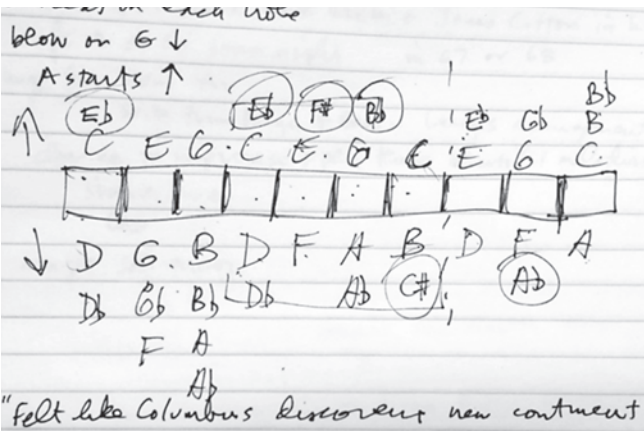 on each note
blow on G ↓
A starts ↑
Eb Eb F# Bb Eb Gb B Bb
↑ C E G C E G C E G C
↓ D G B D F A B D F A
Db Gb Bb Db Ab C# Ab
F A
Ab
"Felt like Columbus discovering new continent